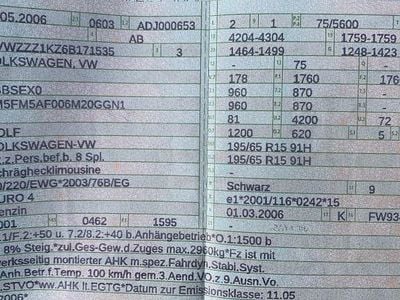 .05.2006 0603 ADJ000653 2 1 75/5600
AB 4204-4304 1759-1759
VWZZZ1KZ6B171535 3 1464-1499 1248-1423
OLKSWAGEN, VW - 75 -
178 1760 176
BBSEX0 960 870 -
M5FM5AF006M20GGN1 960 870 -
81 4200 72
OLF 1200 620 5
OLKSWAGEN-VW 195/65 R15 91H
z.z.Pers.bef.b. 8 Spl. 195/65 R15 91H
chräghecklimousine -
0/220/EWG*2003/76B/EG Schwarz 9
URO 4 e1*2001/116*0242*15
enzin 01.03.2006 K FW934
001 0462 1595
.1/F.2:+50 u. 7.2/8.2:+40 b.Anhängebetrieb*O.1:1500 b
8% Steig.*zul.Ges-Gew.d.Zuges max.2960kg*Fz ist mit
erksseitig montierter AHK m.spez.Fahrdyn.Stabil.Syst.
Anh.Betr.f.Temp. 100 km/h gem.3.Aend.VO.z.9.Ausn.Vo.
.STVO*ww.AHK lt.EGTG*Datum zur Emissionsklasse: 11.05
2006*